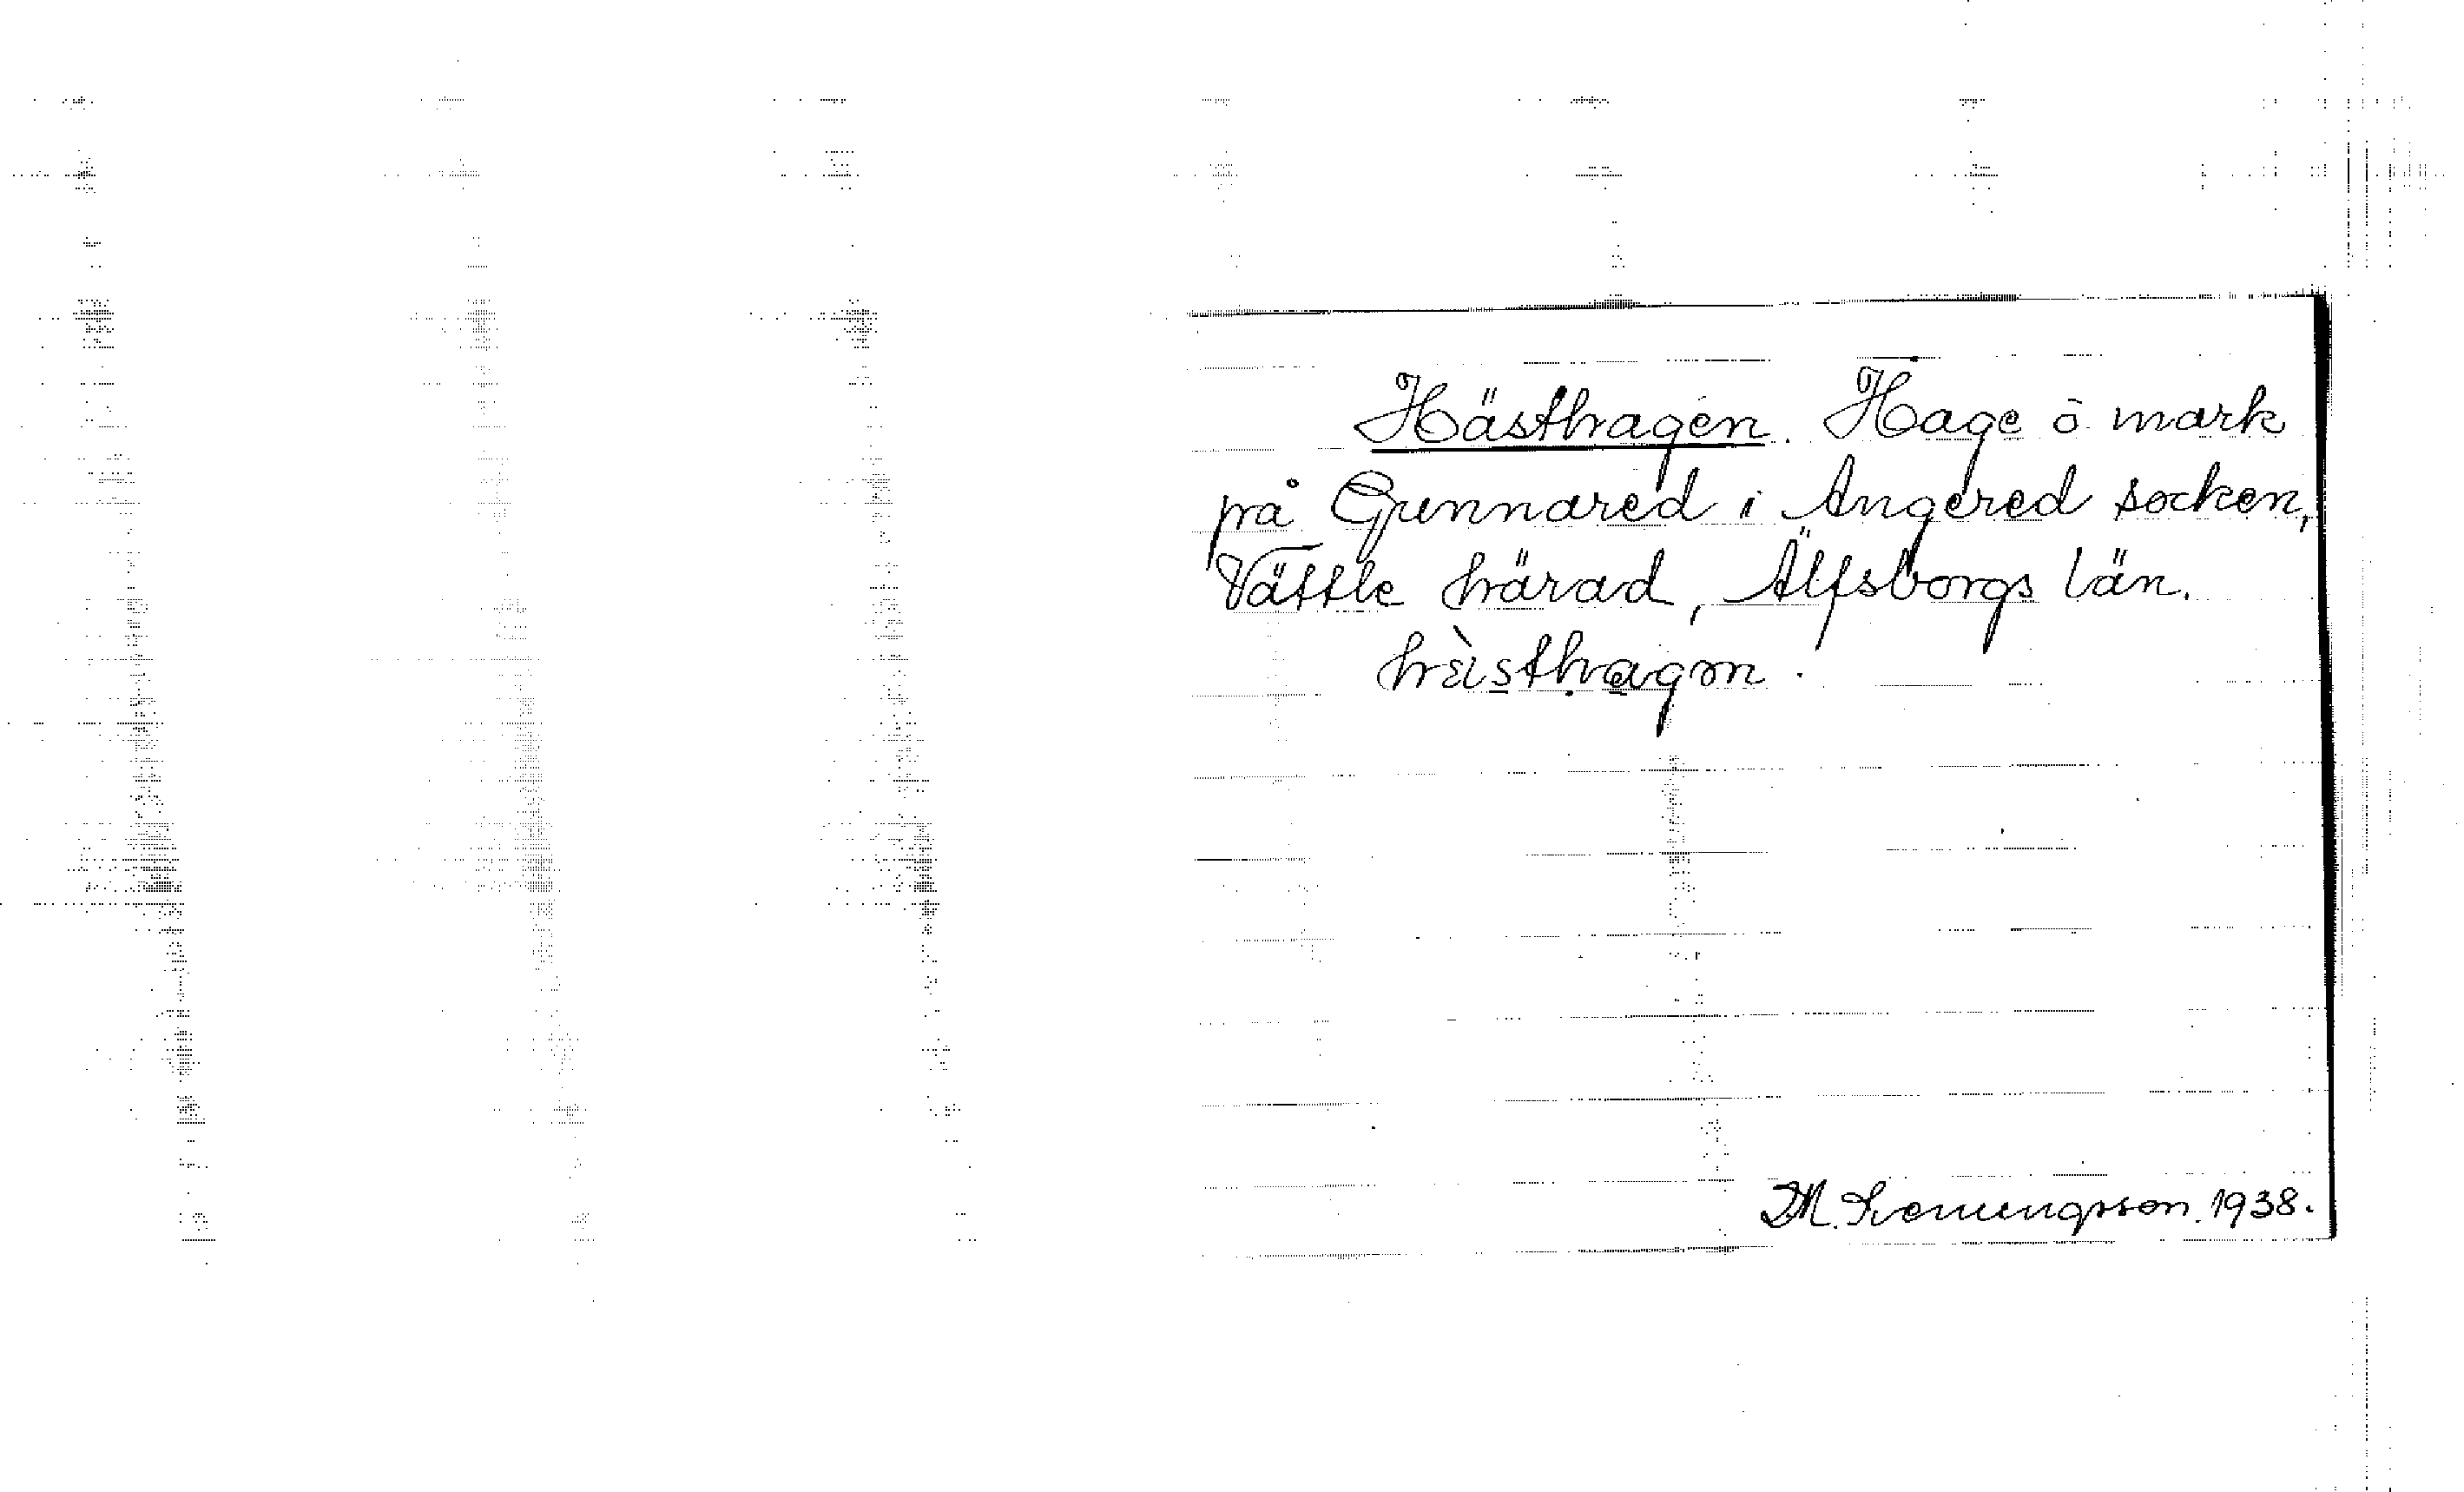 Hästhagen. Hage o. mark
på Gunnared i Angered socken,
Vättle härad, Älfsborgs län.
hɛ̀sthagɷn.
1938.